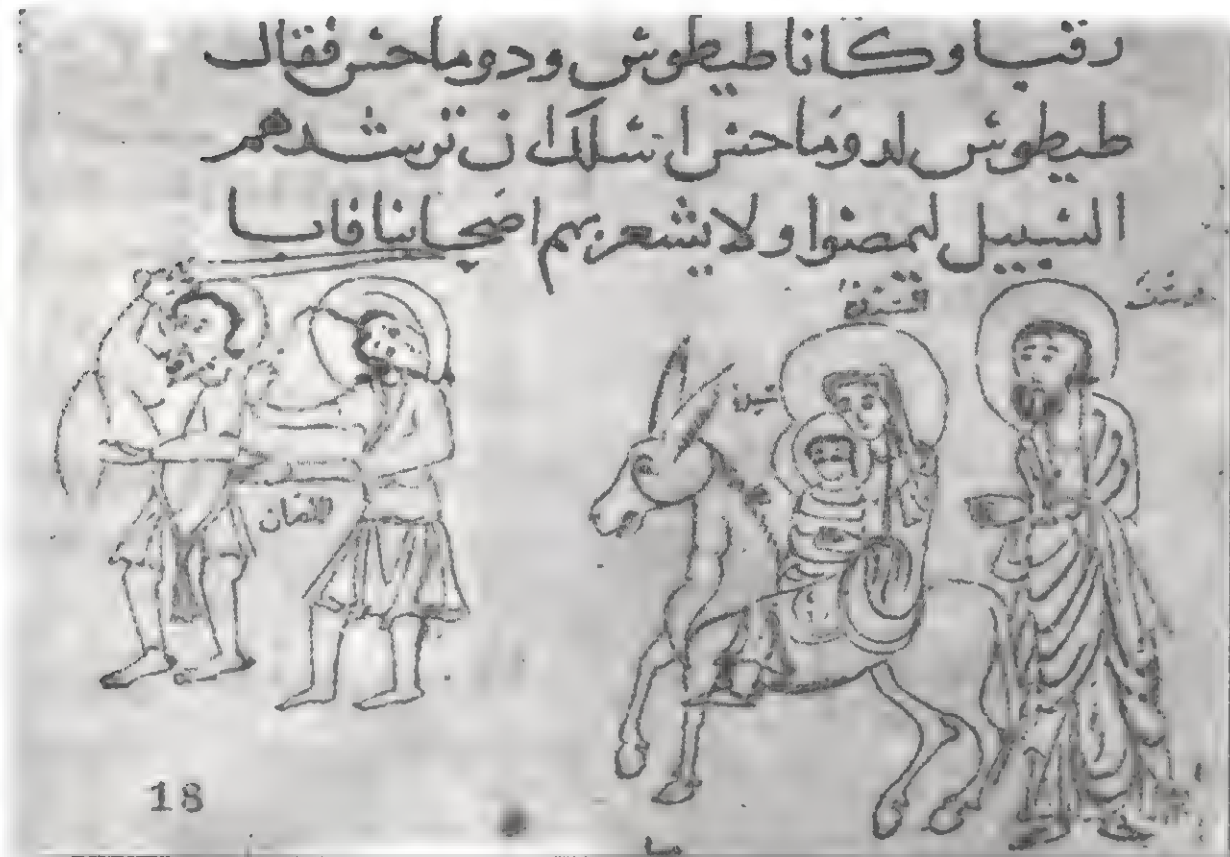 وكانا طيطوش ودوماحش فقال
طيطوش لدوماحش اسلك ان ترشدهم
السبيل ليمضوا ولا يشعر بهم اصحابنا فابا
السيدة
اللصان
18